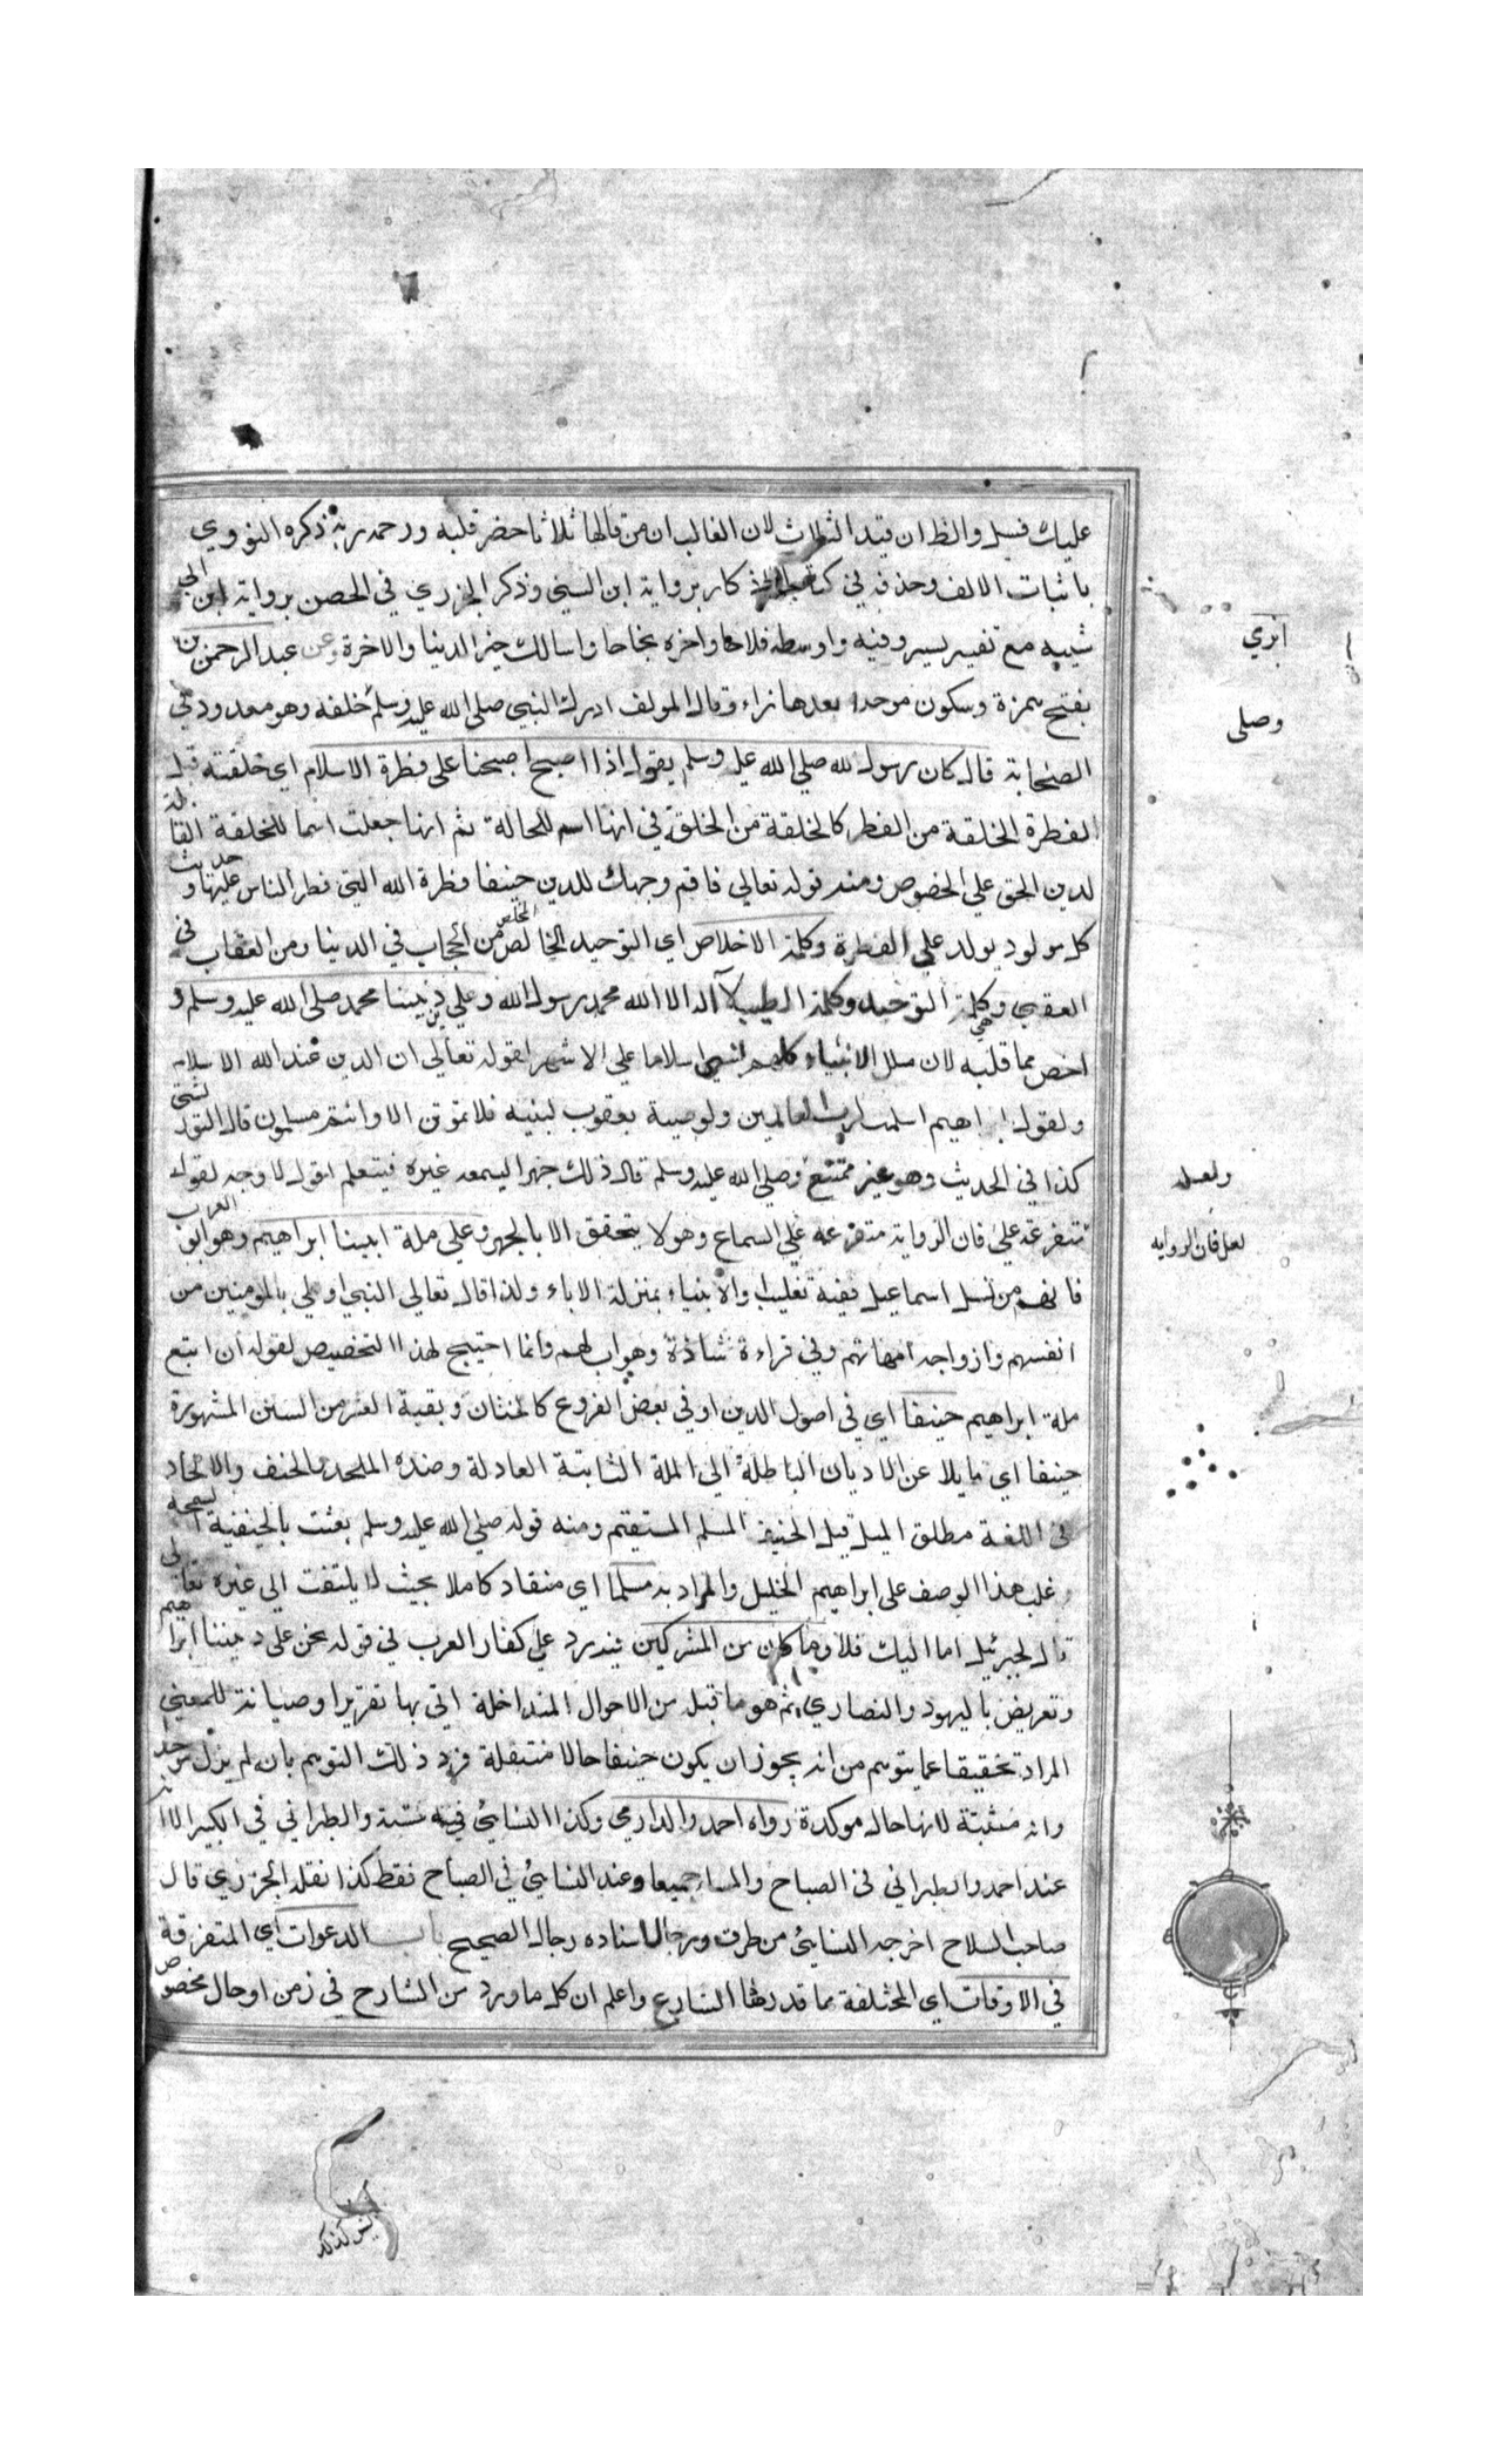 عليك فسل والظ ان قيد الثلاث لان الغالب ان من قالها ثلاثا حضر قلبه ورحمه ربه ذكره النووي
باثبات الالف وحذفه في كتاب الاذكار برواية ابن السني وذكر الجزري في الحصن برواية ابن ابي
شيبه مع تغيير يسير وفيه واوسطه فلاحا واخره نجاحا واسالك خير الدنيا والاخرة وعن عبد الرحمن بن
ابزي
بفتح همزة وسكون موحدة بعدها زاء وقال المولف ادرك النبي صلى الله عليه وسلم خلفه وهو معدود في
وصلى
الصحابة قال كان رسول الله صلى الله عليه وسلم يقول اذا اصبح اصبحنا على فطرة الاسلام اي خلقته قيل
الفطرة الخلقة من الفطر كالخلقة من الخلق في انها اسم للحالة ثم انها جعلت اسما للخلقة القابلة
لدين الحق على الخصوص ومنه قوله تعالى فاقم وجهك للدين حنيفا فطرة الله التي فطر الناس عليها وحديث
كل مولود يولد على الفطرة وكلمة الاخلاص اي التوحيد الخالص المخلص من الحجاب في الدنيا ومن العقاب في
العقبي وهي كلمة التوحيد وكلمة الطيبة لآ اله الا الله محمد رسول الله وعلي دين نبينا محمد صلى الله عليه وسلم و
اخص مما قبله لان ملل الانبياء كلهم تسمي اسلاما على الاشهر لقوله تعالى ان الدين عند الله الاسلام
ولقول ابراهيم اسلمت لرب العالمين ولوصية يعقوب لبنيه فلا تموتن الا وانتم مسلمون قال التوربشتي
كذا في الحديث وهو غير ممتنع وصلى الله عليه وسلم قال ذلك جهرا ليسمعه غيره فيتعلم اقول لا وجه لقوله
ولعله
متفرعة على فان الرواية متفرعه على السماع وهو لا يتحقق الا بالجهر وعلى ملة ابينا ابراهيم وهو ابو العرب
لعل فان الروايه
فانهم من نسل اسماعيل ففيه تغليب والانبياء بمنزلة الاباء ولذا قال تعالى النبي اولى بالمومنين من
انفسهم وازواجه امهاتهم وفي قراءة شاذة وهو اب لهم وانما احتيج لهذا التخصيص لقوله ان اتبع
ملة ابراهيم حنيفا اي في اصول الدين او في بعض الفروع كالختان وبقية العشر من السنن المشهورة
حنيفا اي مايلا عن الاديان الباطلة الى الملة الثابتة العادلة وضده الملحد والحنف والالحاد
في اللغة مطلق الميل قيل الحنيف المسلم المستقيم ومنه قوله صلى الله عليه وسلم بعثت بالحنيفية السمحة
وغلب هذا الوصف على ابراهيم الخليل والمراد به مسلما اي منقاد كاملا بحيث لا يلتفت الى غيره تعالى
قال لجبرئيل اما اليك فلا وما كان من المشركين فيه رد على كفار العرب في قوله نحن على دين ابينا ابراهيم
وتعريض باليهود والنصاري ثم هو ما قبله من الاحوال المتداخلة اتي بها تقريرا وصيانة للمعني
المراد تحقيقا عما يتوهم من انه يجوز ان يكون حنيفا حالا منتقلة فرد ذلك التوهم بان لم يزل موحدا
وانه مثبتة لانها حال موكدة رواه احمد والدارمي وكذا النسائي في سننه والطبراني في الكبير الا انه
عند احمد والطبراني في الصباح والمساء جميعا وعند النسائي في الصباح فقط كذا نقله الجزري قال
صاحب السلاح اخرجه النسائي من طرق ورجال اسناده رجال الصحيح باب الدعوات اي المتفرقة
في الاوقات اي المختلفة مما قدرها الشارع واعلم ان كل ما ورد من الشارح في زمن او حال مخصوص